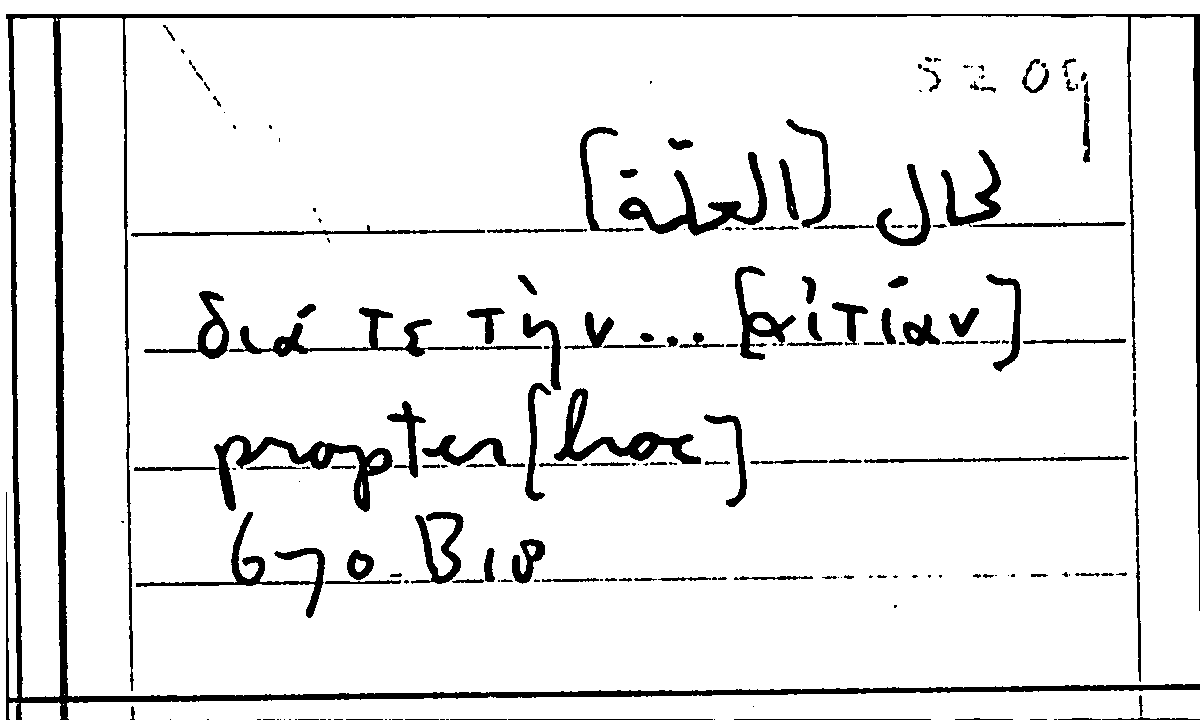 5209
[العلة]
διά τε τὴν... [αἰτίαν]
propter [hoc]
670 B 18